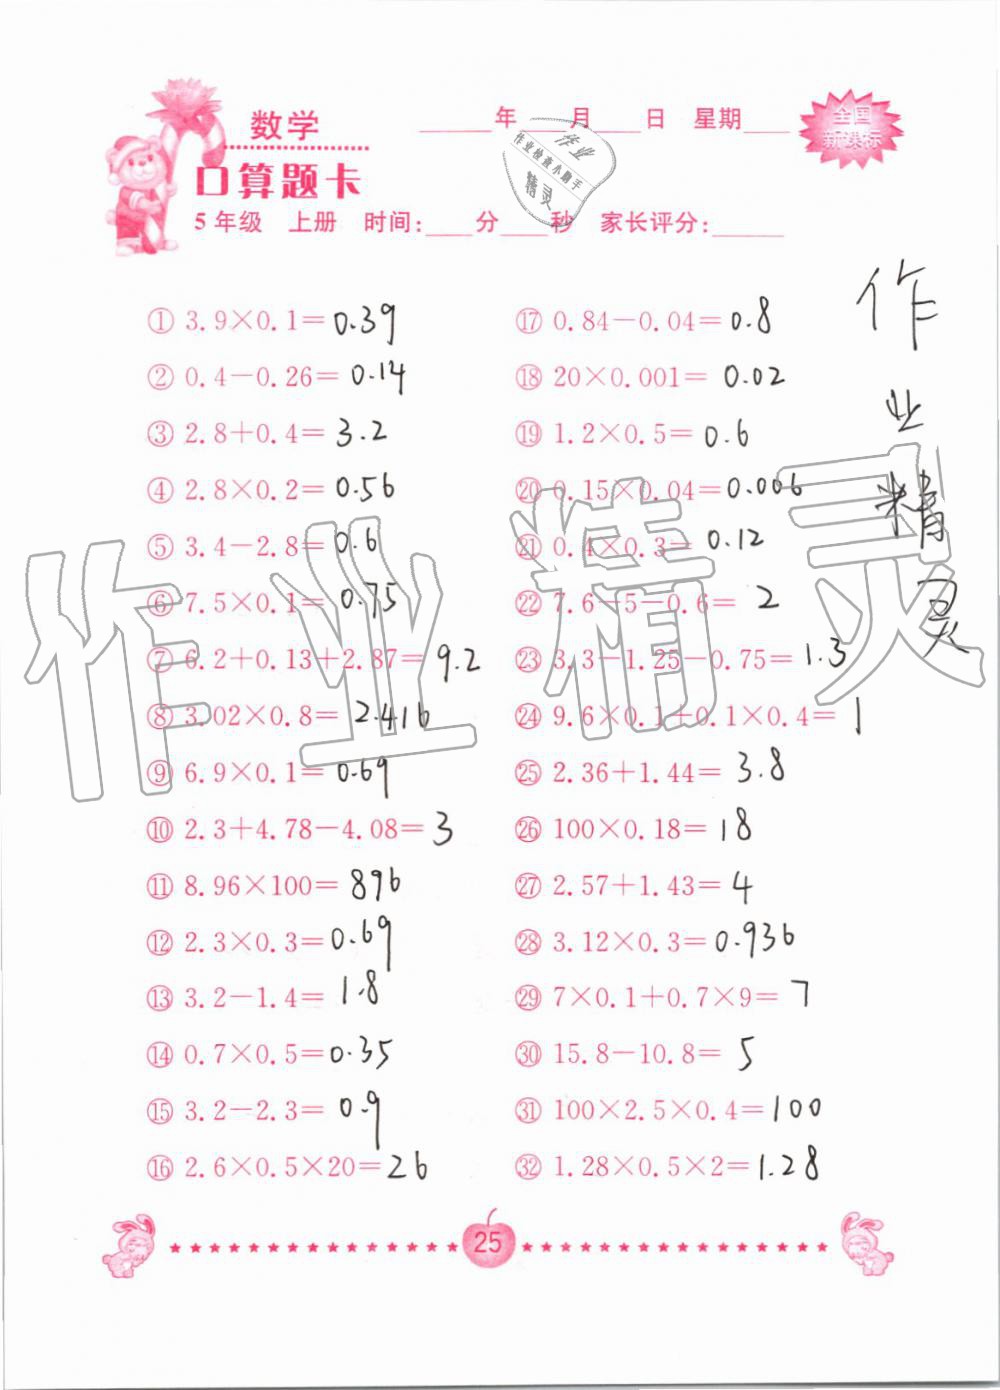 数学
____年____月____日 星期____
全国
新课标
口算题卡
5年级 上册 时间:____分____秒 家长评分:______
作业
作业检查小助手
精灵
① 3.9×0.1=0.39
② 0.4-0.26=0.14
③ 2.8+0.4=3.2
④ 2.8×0.2=0.56
⑤ 3.4-2.8=0.6
⑥ 7.5×0.1=0.75
⑦ 6.2+0.13+2.87=9.2
⑧ 3.02×0.8=2.416
⑨ 6.9×0.1=0.69
⑩ 2.3+4.78-4.08=3
⑪ 8.96×100=896
⑫ 2.3×0.3=0.69
⑬ 3.2-1.4=1.8
⑭ 0.7×0.5=0.35
⑮ 3.2-2.3=0.9
⑯ 2.6×0.5×20=26
⑰ 0.84-0.04=0.8
⑱ 20×0.001=0.02
⑲ 1.2×0.5=0.6
⑳ 0.15×0.04=0.006
㉑ 0.4×0.3=0.12
㉒ 7.6-5-0.6=2
㉓ 3.3-1.25-0.75=1.3
㉔ 9.6×0.1+0.1×0.4=1
㉕ 2.36+1.44=3.8
㉖ 100×0.18=18
㉗ 2.57+1.43=4
㉘ 3.12×0.3=0.936
㉙ 7×0.1+0.7×9=7
㉚ 15.8-10.8=5
㉛ 100×2.5×0.4=100
㉜ 1.28×0.5×2=1.28
作
业
精
灵
作业精灵
25